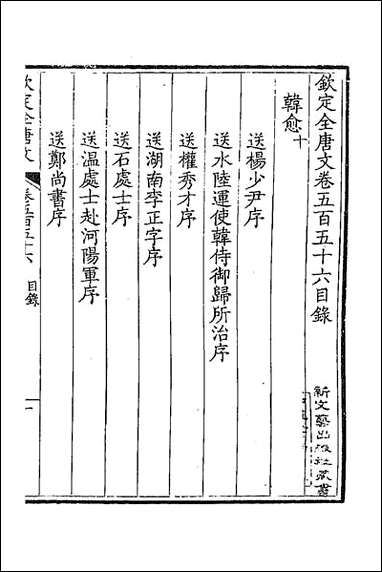 欽定全唐文卷五百五十六目錄
韓愈十
送楊少尹序
送水陸運使韓侍御歸所治序
送權秀才序
送湖南李正字序
送石處士序
送溫處士赴河陽軍序
送鄭尚書序
欽定全唐文
卷五百五十六
目錄
一
新文藝出版社藏書